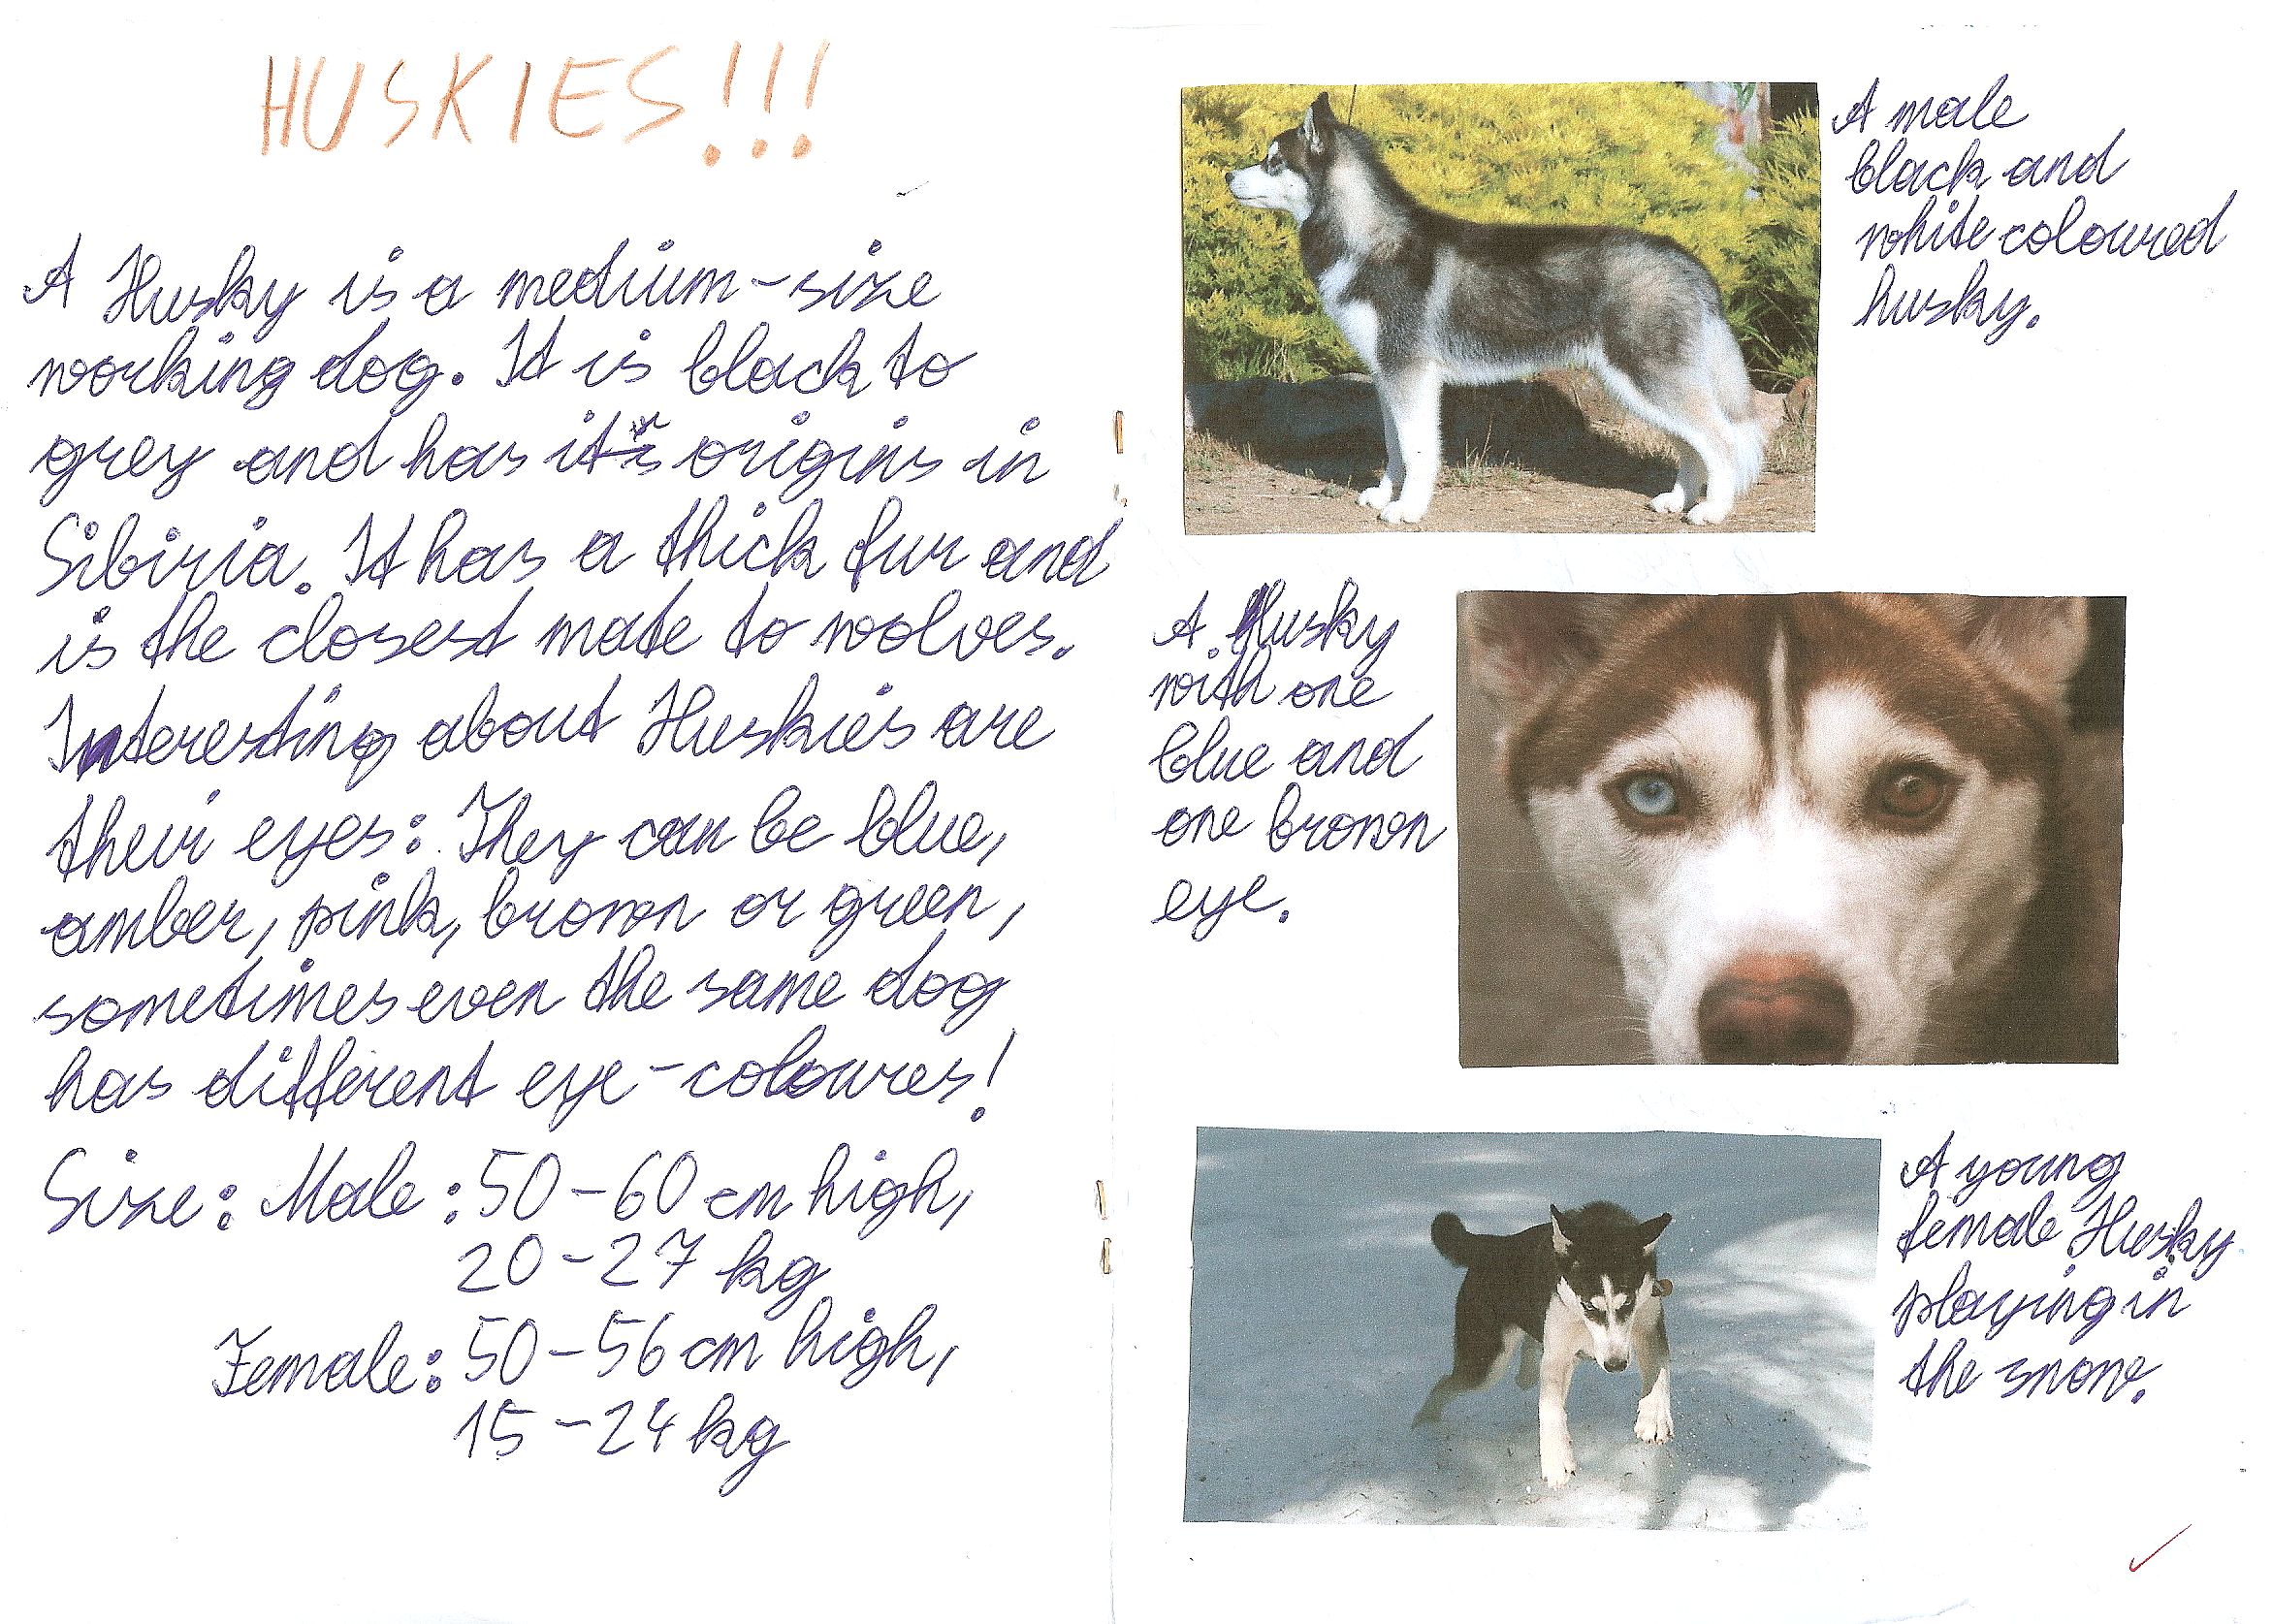 HUSKIES!!!
A Husky is a medium-size
working dog. It is black to
grey and has its origins in
Sibiria. It has a thick fur and
is the closest mate to wolves.
Interesting about Huskies are
their eyes: They can be blue,
amber, pink, brown or green,
sometimes even the same dog
has different eye-coloures!
Size: Male: 50-60 cm high,
20-27 kg
Female: 50-56 cm high,
15-24 kg
A male
black and
white coloured
husky.
A Husky
with one
blue and
one brown
eye.
A young
female Husky
playing in
the snow.